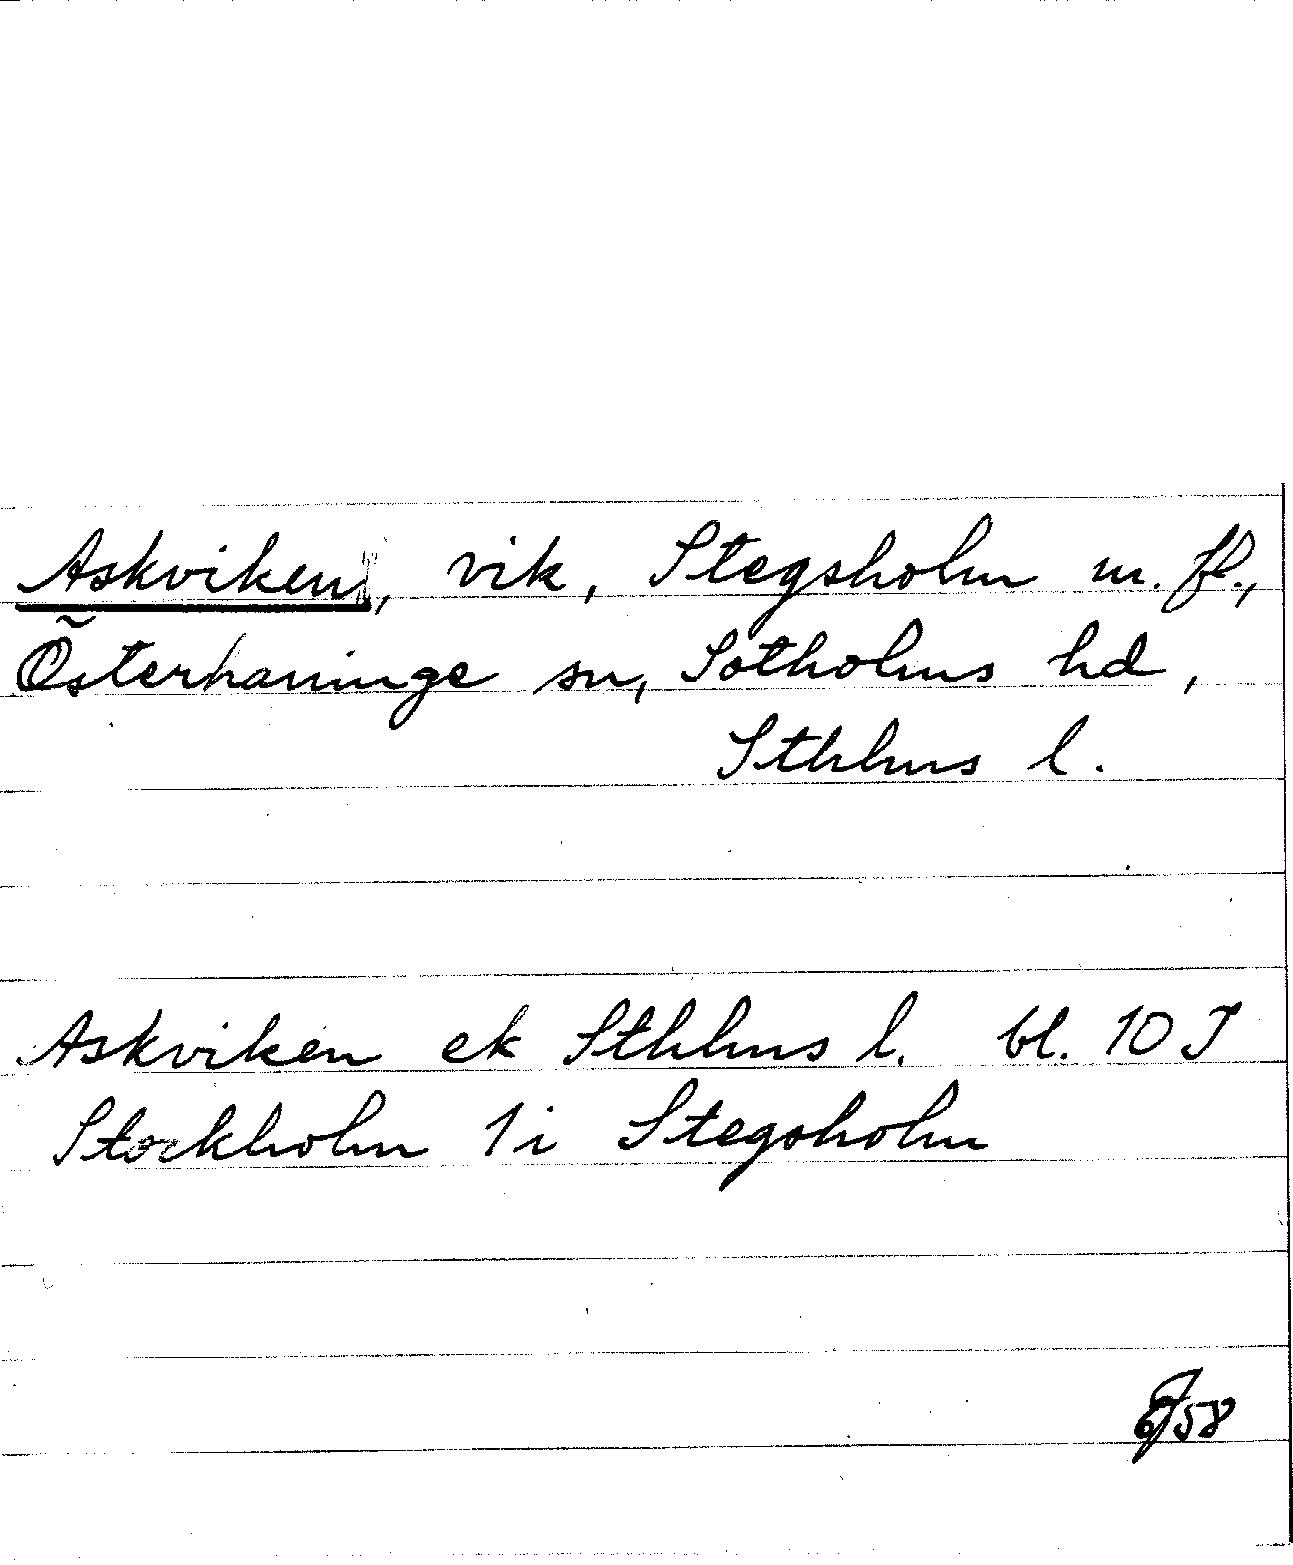 Askviken, vik, Stegsholm m. fl.,
Österhaninge sn, Sotholms hd,
Sthlms l.
Askviken ek Sthlms l. bl. 10 J
Stockholm 1i Stegsholm
58